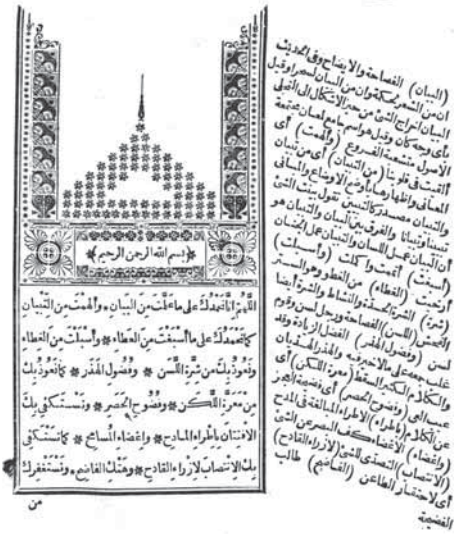 بسم الله الرحمن الرحيم
اللّهُمَّ إِنَّا نَحْمَدُكَ عَلَى مَا عَلَّمْتَ مِنَ البَيَان * وَأَلْهَمْتَ مِنَ التِّبْيَان
كَمَا نَحْمَدُكَ عَلَى مَا أَسْبَغْتَ مِنَ العَطَاء * وَأَسْبَلْتَ مِنَ الغِطَاء
وَنَعُوذُ بِكَ مِنْ شِرَّةِ اللَّسَن * وَفُضُولِ الهَذَر * كَمَا نَعُوذُ بِكَ
مِنْ مَعَرَّةِ اللَّكَن * وَفُضُوحِ الحَصَر * وَنَسْتَكْفِي بِكَ
الاِفْتِتَانَ بِإِطْرَاءِ المَادِح * وَإِغْضَاءِ المُسَامِح * كَمَا نَسْتَكْفِي
بِكَ الاِنْتِصَابَ لإِزْرَاءِ القَادِح * وَهَتْكِ الفَاضِح * وَنَسْتَغْفِرُكَ
من
(البيان) الفصاحة والايضاح وفي الحديث
ان من الشعر لحكمة وان من البيان لسحرا وقيل
البيان اخراج الشئ من حيز الاشكال الى التجلى
بأى وجه كان وقيل هو اسم جامع لمعان مجتمعة
الاصول متشعبة الفروع (وألهمت) أى
ألقيت فى قلوبنا (من التبيان) أى من تبيان
المعانى واظهارها بأوضح الاوضاع والمبانى
والتبيان مصدر كالتبيين تقول بينت الشئ
تبيينا وتبيانا والفرق بين البيان والتبيان هو
أن البيان عمل اللسان والتبيان عمل الجنان
(أسبغت) أتممت وأكملت (وأسبلت)
أرخيت (الغطاء) من الغطو وهو الستر
(شرة) الشرة الحدة والنشاط والشرة أيضا
الفحش (اللسن) الفصاحة ورجل لسن وقوم
لسن (وفضول الهذر) الفضل الزيادة وقد
غلب جمعه على ما لا خير فيه والهذر الهذيان
والكلام الكثير السقط (معرة اللكن) أى
عيب العى (وفضوح الحصر) أى فضيحة العجز
عن الكلام (باطراء) الاطراء المبالغة فى المدح
(واغضاء) الاغضاء كف البصر عن الشئ
(الانتصاب) التصدى للشئ (لازراء القادح)
أى لاحتقار الطاعن (الفاضح) طالب
الفضيحة